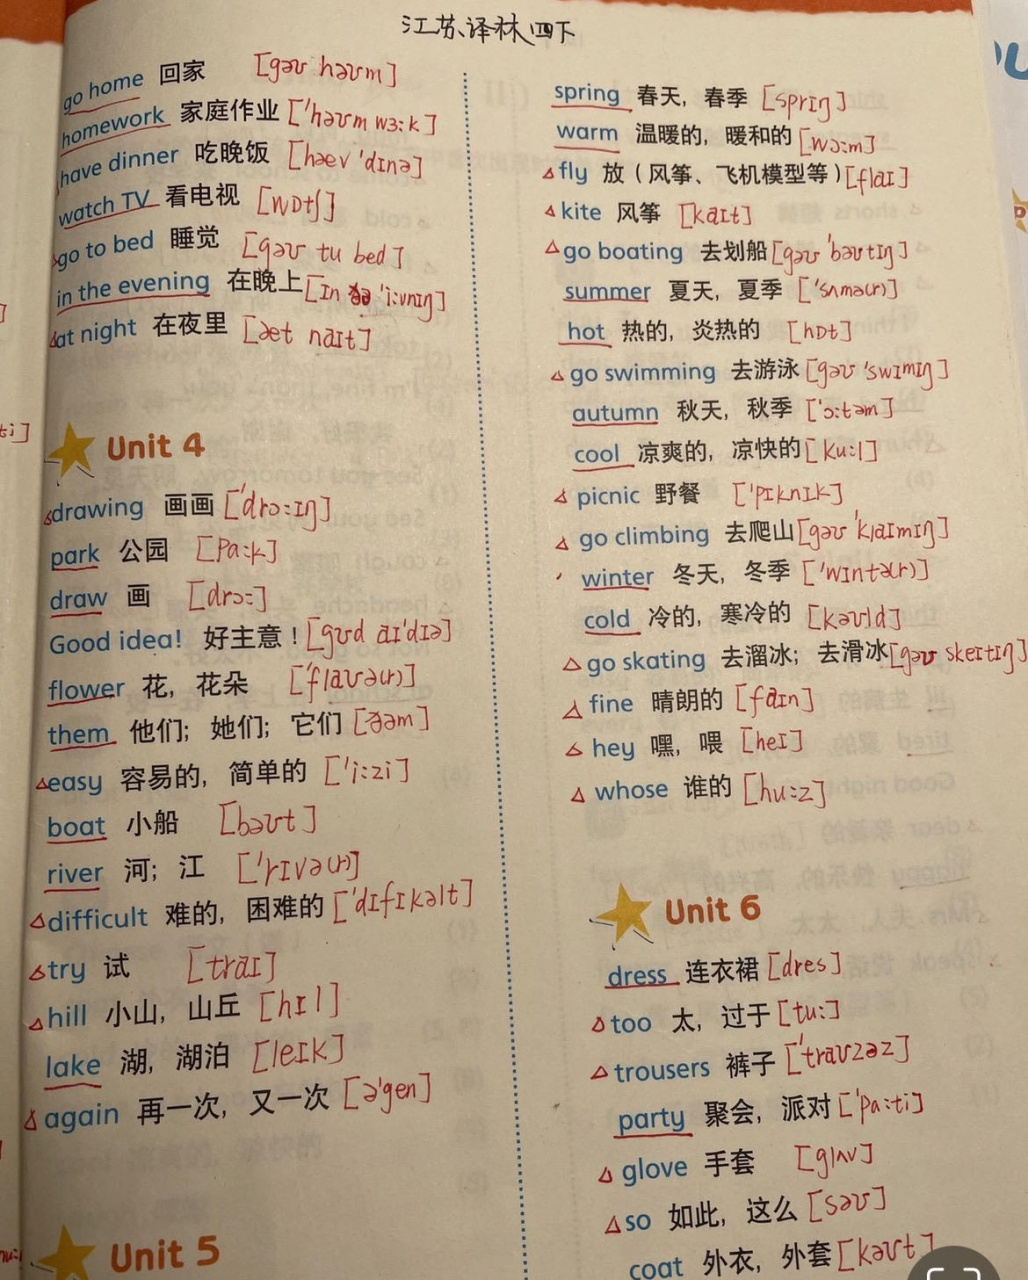 江苏译林四下
go home 回家 [gəʊ həʊm]
homework 家庭作业 ['həʊm wɜːk]
have dinner 吃晚饭 [həev 'dɪnə]
watch TV 看电视 [wɒtʃ]
go to bed 睡觉 [gəʊ tu bed]
in the evening 在晚上 [ɪn ðə 'iːvnɪŋ]
at night 在夜里 [əet naɪt]
Unit 4
drawing 画画 ['drɔːɪŋ]
park 公园 [pɑːk]
draw 画 [drɔː]
Good idea! 好主意！ [gʊd aɪ'dɪə]
flower 花，花朵 ['flaʊə(r)]
them 他们；她们；它们 [ðəm]
easy 容易的，简单的 ['iːzi]
boat 小船 [bəʊt]
river 河；江 ['rɪvə(r)]
difficult 难的，困难的 ['dɪfɪkəlt]
try 试 [traɪ]
hill 小山，山丘 [hɪl]
lake 湖，湖泊 [leɪk]
again 再一次，又一次 [ə'gen]
Unit 5
spring 春天，春季 [sprɪŋ]
warm 温暖的，暖和的 [wɔːm]
fly 放（风筝、飞机模型等） [flaɪ]
kite 风筝 [kaɪt]
go boating 去划船 [gəʊ 'bəʊtɪŋ]
summer 夏天，夏季 ['sʌmə(r)]
hot 热的，炎热的 [hɒt]
go swimming 去游泳 [gəʊ 'swɪmɪŋ]
autumn 秋天，秋季 ['ɔːtəm]
cool 凉爽的，凉快的 [kuːl]
picnic 野餐 ['pɪknɪk]
go climbing 去爬山 [gəʊ 'klaɪmɪŋ]
winter 冬天，冬季 ['wɪntə(r)]
cold 冷的，寒冷的 [kəʊld]
go skating 去溜冰；去滑冰 [gəʊ skeɪtɪŋ]
fine 晴朗的 [faɪn]
hey 嘿，喂 [heɪ]
whose 谁的 [huːz]
Unit 6
dress 连衣裙 [dres]
too 太，过于 [tuː]
trousers 裤子 ['traʊzəz]
party 聚会，派对 ['pɑːti]
glove 手套 [glʌv]
so 如此，这么 [səʊ]
coat 外衣，外套 [kəʊt]